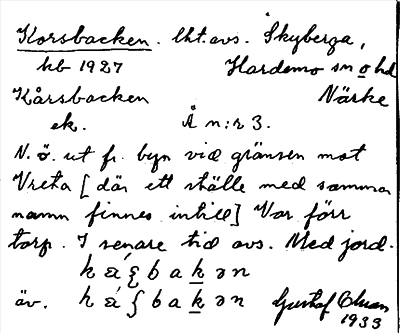 Korsbacken. lht. avs. Skyberga,
kb 1927 Hardemo sn o hd
Kårsbacken Närke
ek. Å n:r 3.
N. ö. ut fr. byn vid gränsen mot
Vreta [där ett ställe med samma
namn finnes intill] Var förr
torp. I senare tid avs. Med jord.
b a k ə n
äv. b a k ə n Gustaf
1933